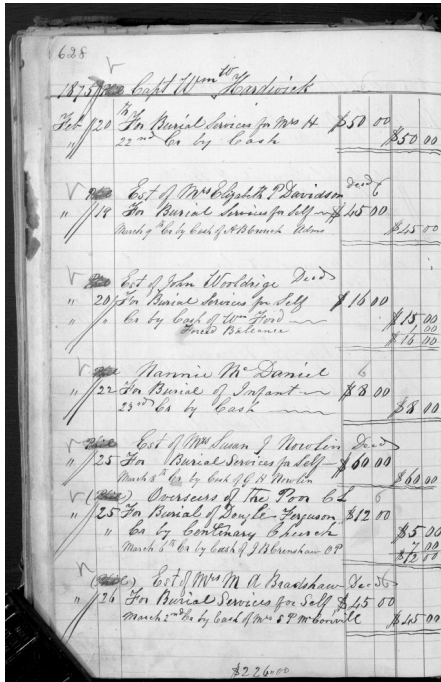 628
1875 Capt Wm W Hardwick
Feb 20 For Burial Services for Mrs H $50 00
" 22nd Cr by Cash $50 00
Est of Mrs Elizabeth P Davidson Decd 6
" 19 For Burial Services for Self $45 00
March 9th Cr by Cash of A B Crouch Admr $45 00
Est of John Wooldrige Decd
" 20 For Burial Services for Self $16 00
" " Cr by Cash of Wm Ford $15 00
Forced Balance 1 00
$16 00
Nannie McDaniel 6
" 22 For Burial of Infant $8 00
23rd Cr by Cash $8 00
Est of Mrs Susan J Nowlin Decd
" 25 For Burial Services for Self $60 00
March 8th Cr by Cash of G H Nowlin $60 00
Overseers of the Poor 6
" 25 For Burial of Ferguson $12 00
" Cr by Centenary Church $5 00
March 6th Cr by Cash of J B Crenshaw O P 7 00
$12 00
Est of Mrs M A Bradshaw Decd 6
" 26 For Burial Services for Self $45 00
March 2nd Cr by Cash of Mrs $45 00
$226.00